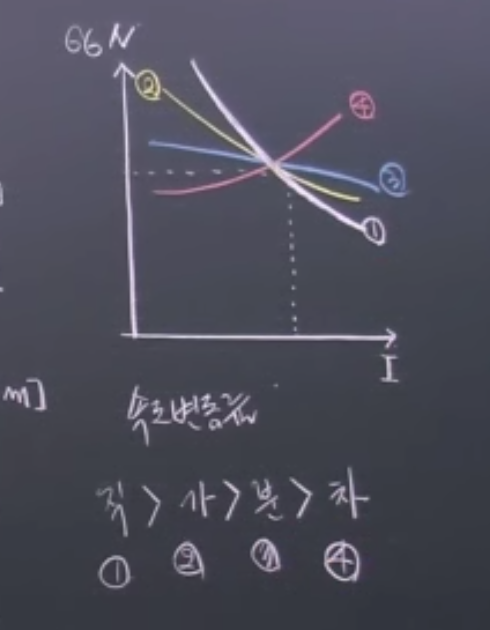 66 N
② ④
③
①
I
m]
속도변동률
직 > 가 > 분 > 차
① ② ③ ④